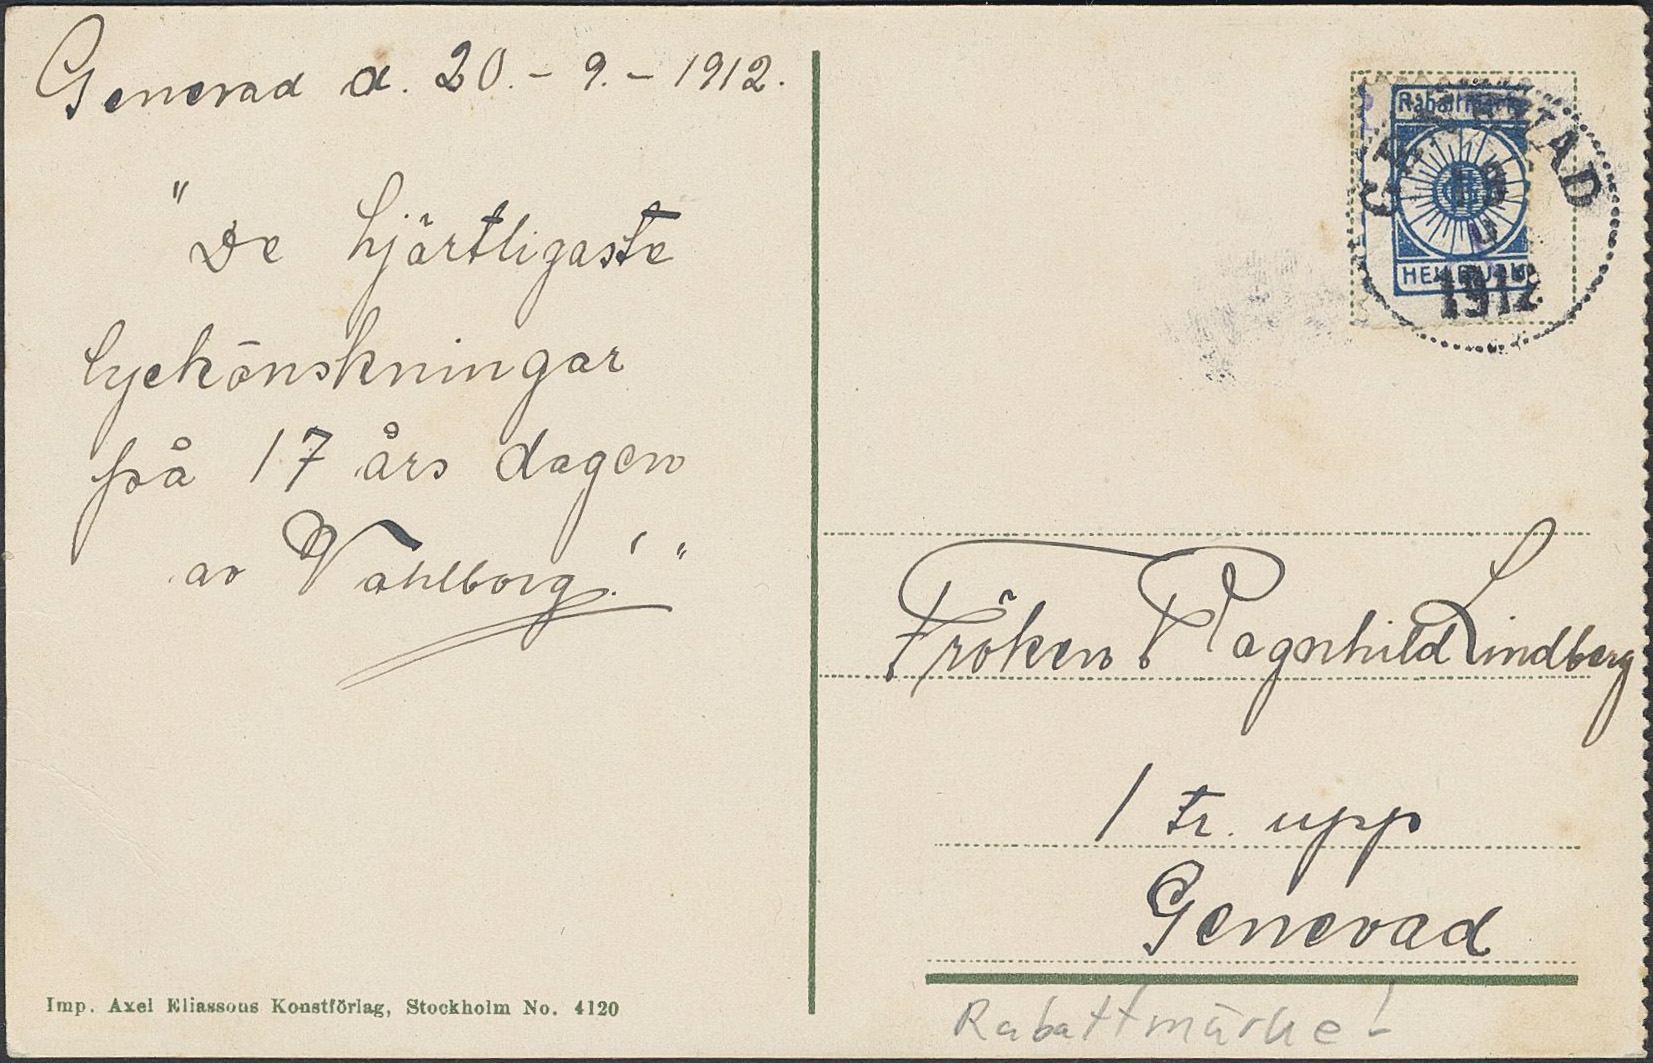 Genevad d. 20.-9.-1912.
"De hjärtligaste
lyckönskningar
på 17 års dagen
av Vahlborg.!"
Imp. Axel Eliassons Konstförlag, Stockholm No. 4120
Rabattmärke
GENEVAD
1912
Fröken Ragnhild Lindberg
1 tr. upp
Genevad
Rabattmärke!